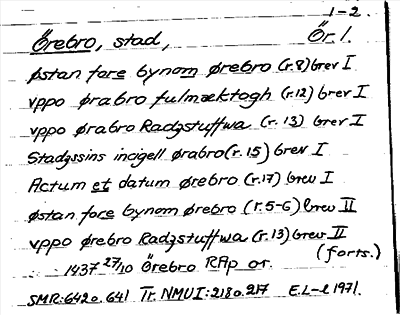 1-2.
Örebro, stad, Ör.l.
østan fore bynom ørebro (r.8) brev I
vppo ørabro fulmæktogh (r.12) brev I
vppo ørabro Radzstuffwa (r.13) brev I
Stadzssins incigell ørabro (r.15) brev I
Actum et datum ørebro (r.17) brev I
østan fore bynom ørebro (r.5-6) brev II
vppo ørebro Radzstuffwa (r.13) brev II
(forts.)
1437 27/10 Örebro RAp or.
SMR: 642 o. 641 Tr. NMU I: 218 o. 217 E.L-l 1971.